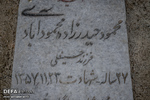 محمود حیدرزاده محمودآباد
فرزند حسینعلی
۲۷ساله شهادت ۱۳۵۷/۱۱/۲۲